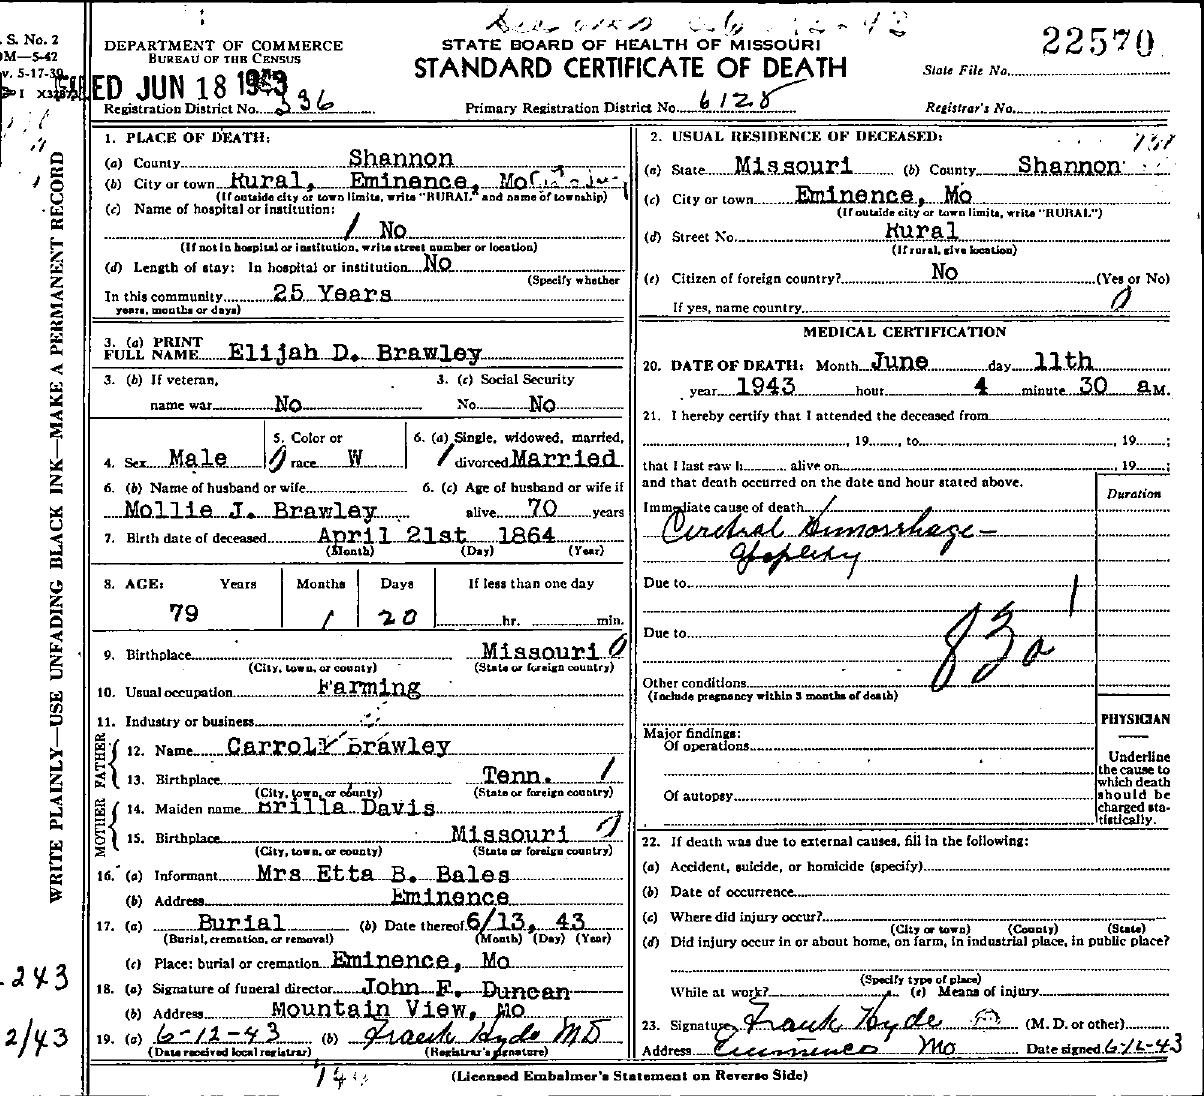 22570
S. No. 2
DEPARTMENT OF COMMERCE
BUREAU OF THE CENSUS
STATE BOARD OF HEALTH OF MISSOURI
STANDARD CERTIFICATE OF DEATH
State File No.
v. 5-17-39
ED JUN 18 1943
Registration District No. 336
Primary Registration District No. 6128
Registrar's No.
WRITE PLAINLY—USE UNFADING BLACK INK—MAKE A PERMANENT RECORD
1. PLACE OF DEATH:
(a) County Shannon
(b) City or town Rural, Eminence, Mo
(If outside city or town limits, write "RURAL" and name of township)
(c) Name of hospital or institution:
No
(If not in hospital or institution, write street number or location)
(d) Length of stay: In hospital or institution No
(Specify whether
In this community 25 Years
years, months or days)
2. USUAL RESIDENCE OF DECEASED:
(a) State Missouri (b) County Shannon
(c) City or town Eminence, Mo
(If outside city or town limits, write "RURAL")
(d) Street No. Rural
(If rural, give location)
(e) Citizen of foreign country? No (Yes or No)
If yes, name country 0
3. (a) PRINT
FULL NAME Elijah D. Brawley
3. (b) If veteran,
name war No
3. (c) Social Security
No. No
4. Sex Male
5. Color or
race W
6. (a) Single, widowed, married,
divorced Married
6. (b) Name of husband or wife
Mollie J. Brawley
6. (c) Age of husband or wife if
alive 70 years
7. Birth date of deceased April 21st 1864
(Month) (Day) (Year)
8. AGE: Years Months Days If less than one day
79 1 20 hr. min.
9. Birthplace Missouri 0
(City, town, or county) (State or foreign country)
10. Usual occupation Farming
11. Industry or business
FATHER
12. Name Carroll Brawley
13. Birthplace Tenn. 1
(City, town, or county) (State or foreign country)
MOTHER
14. Maiden name Brilla Davis
15. Birthplace Missouri 0
(City, town, or county) (State or foreign country)
16. (a) Informant Mrs Etta B. Bales
(b) Address Eminence
17. (a) Burial (b) Date thereof 6/13, 43
(Burial, cremation, or removal) (Month) (Day) (Year)
(c) Place: burial or cremation Eminence, Mo
18. (a) Signature of funeral director John F. Duncan
(b) Address Mountain View, Mo
19. (a) 6-12-43 (b) Frank Hyde MD
(Date received local registrar) (Registrar's signature)
MEDICAL CERTIFICATION
20. DATE OF DEATH: Month June day 11th
year 1943 hour 4 minute 30 a M.
21. I hereby certify that I attended the deceased from
, 19 , to , 19 ;
that I last saw h alive on , 19 ;
and that death occurred on the date and hour stated above.
Duration
Immediate cause of death
Cerebral Hemorrhage -
Apoplexy
Due to
Due to
83a
1
Other conditions
(Include pregnancy within 3 months of death)
Major findings:
Of operations
Of autopsy
PHYSICIAN
Underline
the cause to
which death
should be
charged sta-
tistically.
22. If death was due to external causes, fill in the following:
(a) Accident, suicide, or homicide (specify)
(b) Date of occurrence
(c) Where did injury occur?
(City or town) (County) (State)
(d) Did injury occur in or about home, on farm, in industrial place, in public place?
(Specify type of place)
While at work? (e) Means of injury
23. Signature Frank Hyde (M. D. or other)
Address Eminence Mo Date signed 6-12-43
(Licensed Embalmer's Statement on Reverse Side)
-243
2/43